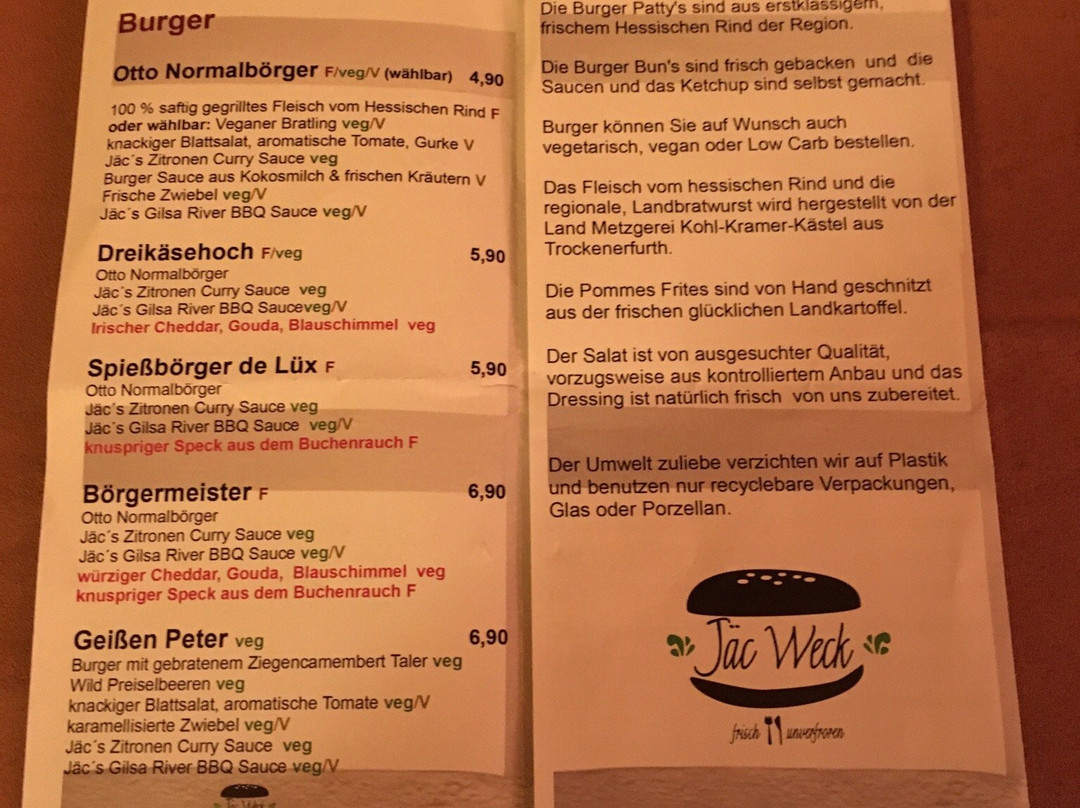 Burger
Otto Normalbörger F/veg/V (wählbar) 4,90
100 % saftig gegrilltes Fleisch vom Hessischen Rind F
oder wählbar: Veganer Bratling veg/V
knackiger Blattsalat, aromatische Tomate, Gurke V
Jäc´s Zitronen Curry Sauce veg
Burger Sauce aus Kokosmilch & frischen Kräutern V
Frische Zwiebel veg/V
Jäc´s Gilsa River BBQ Sauce veg/V
Dreikäsehoch F/veg 5,90
Otto Normalbörger
Jäc´s Zitronen Curry Sauce veg
Jäc´s Gilsa River BBQ Sauceveg/V
Irischer Cheddar, Gouda, Blauschimmel veg
Spießbörger de Lüx F 5,90
Otto Normalbörger
Jäc´s Zitronen Curry Sauce veg
Jäc´s Gilsa River BBQ Sauce veg/V
knuspriger Speck aus dem Buchenrauch F
Börgermeister F 6,90
Otto Normalbörger
Jäc´s Zitronen Curry Sauce veg
Jäc´s Gilsa River BBQ Sauce veg/V
würziger Cheddar, Gouda, Blauschimmel veg
knuspriger Speck aus dem Buchenrauch F
Geißen Peter veg 6,90
Burger mit gebratenem Ziegencamembert Taler veg
Wild Preiselbeeren veg
knackiger Blattsalat, aromatische Tomate veg/V
karamellisierte Zwiebel veg/V
Jäc´s Zitronen Curry Sauce veg
Jäc´s Gilsa River BBQ Sauce veg/V
Jäc Weck
Die Burger Patty's sind aus erstklassigem,
frischem Hessischen Rind der Region.
Die Burger Bun's sind frisch gebacken und die
Saucen und das Ketchup sind selbst gemacht.
Burger können Sie auf Wunsch auch
vegetarisch, vegan oder Low Carb bestellen.
Das Fleisch vom hessischen Rind und die
regionale, Landbratwurst wird hergestellt von der
Land Metzgerei Kohl-Kramer-Kästel aus
Trockenerfurth.
Die Pommes Frites sind von Hand geschnitzt
aus der frischen glücklichen Landkartoffel.
Der Salat ist von ausgesuchter Qualität,
vorzugsweise aus kontrolliertem Anbau und das
Dressing ist natürlich frisch von uns zubereitet.
Der Umwelt zuliebe verzichten wir auf Plastik
und benutzen nur recyclebare Verpackungen,
Glas oder Porzellan.
Jäc Weck
frisch unverfroren